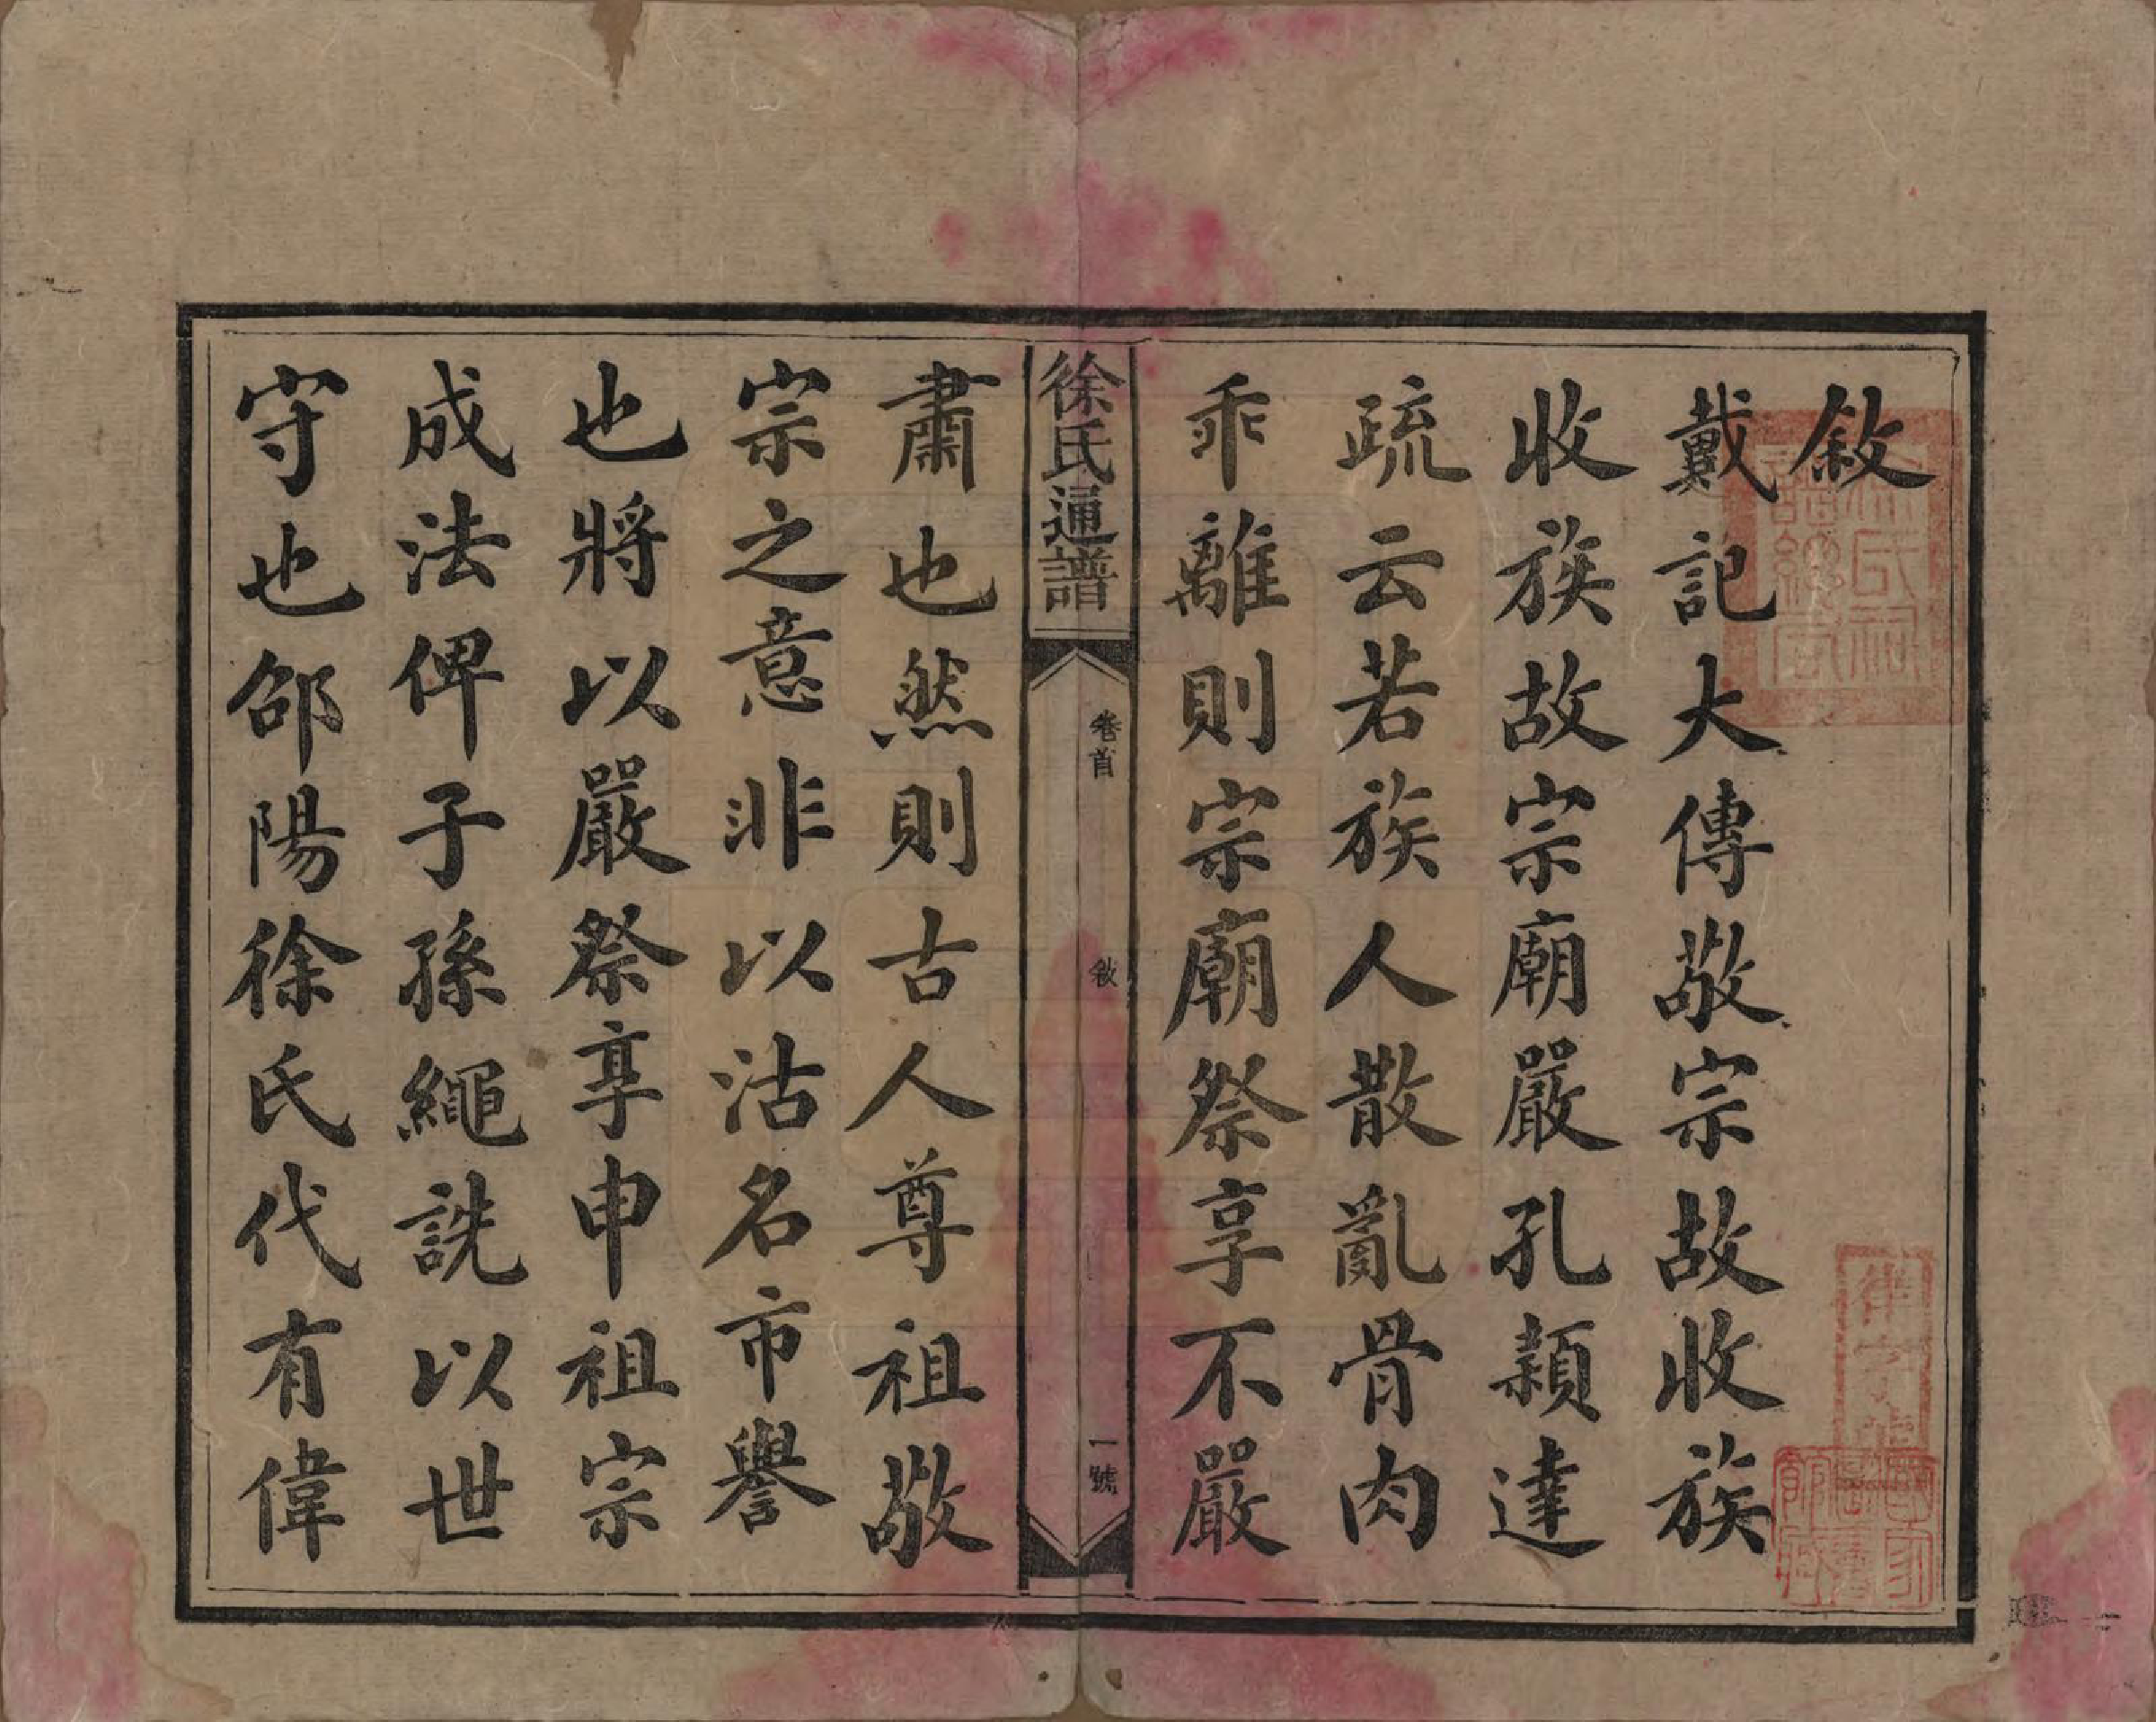 敘
戴記大傳敬宗故收族
收族故宗廟嚴孔穎達
疏云若族人散亂骨肉
乖離則宗廟祭享不嚴
徐氏通譜
卷首
敘
一號
肅也然則古人尊祖敬
宗之意非以沽名市譽
也將以嚴祭享申祖宗
成法俾子孫繩詵以世
守也邵陽徐氏代有偉